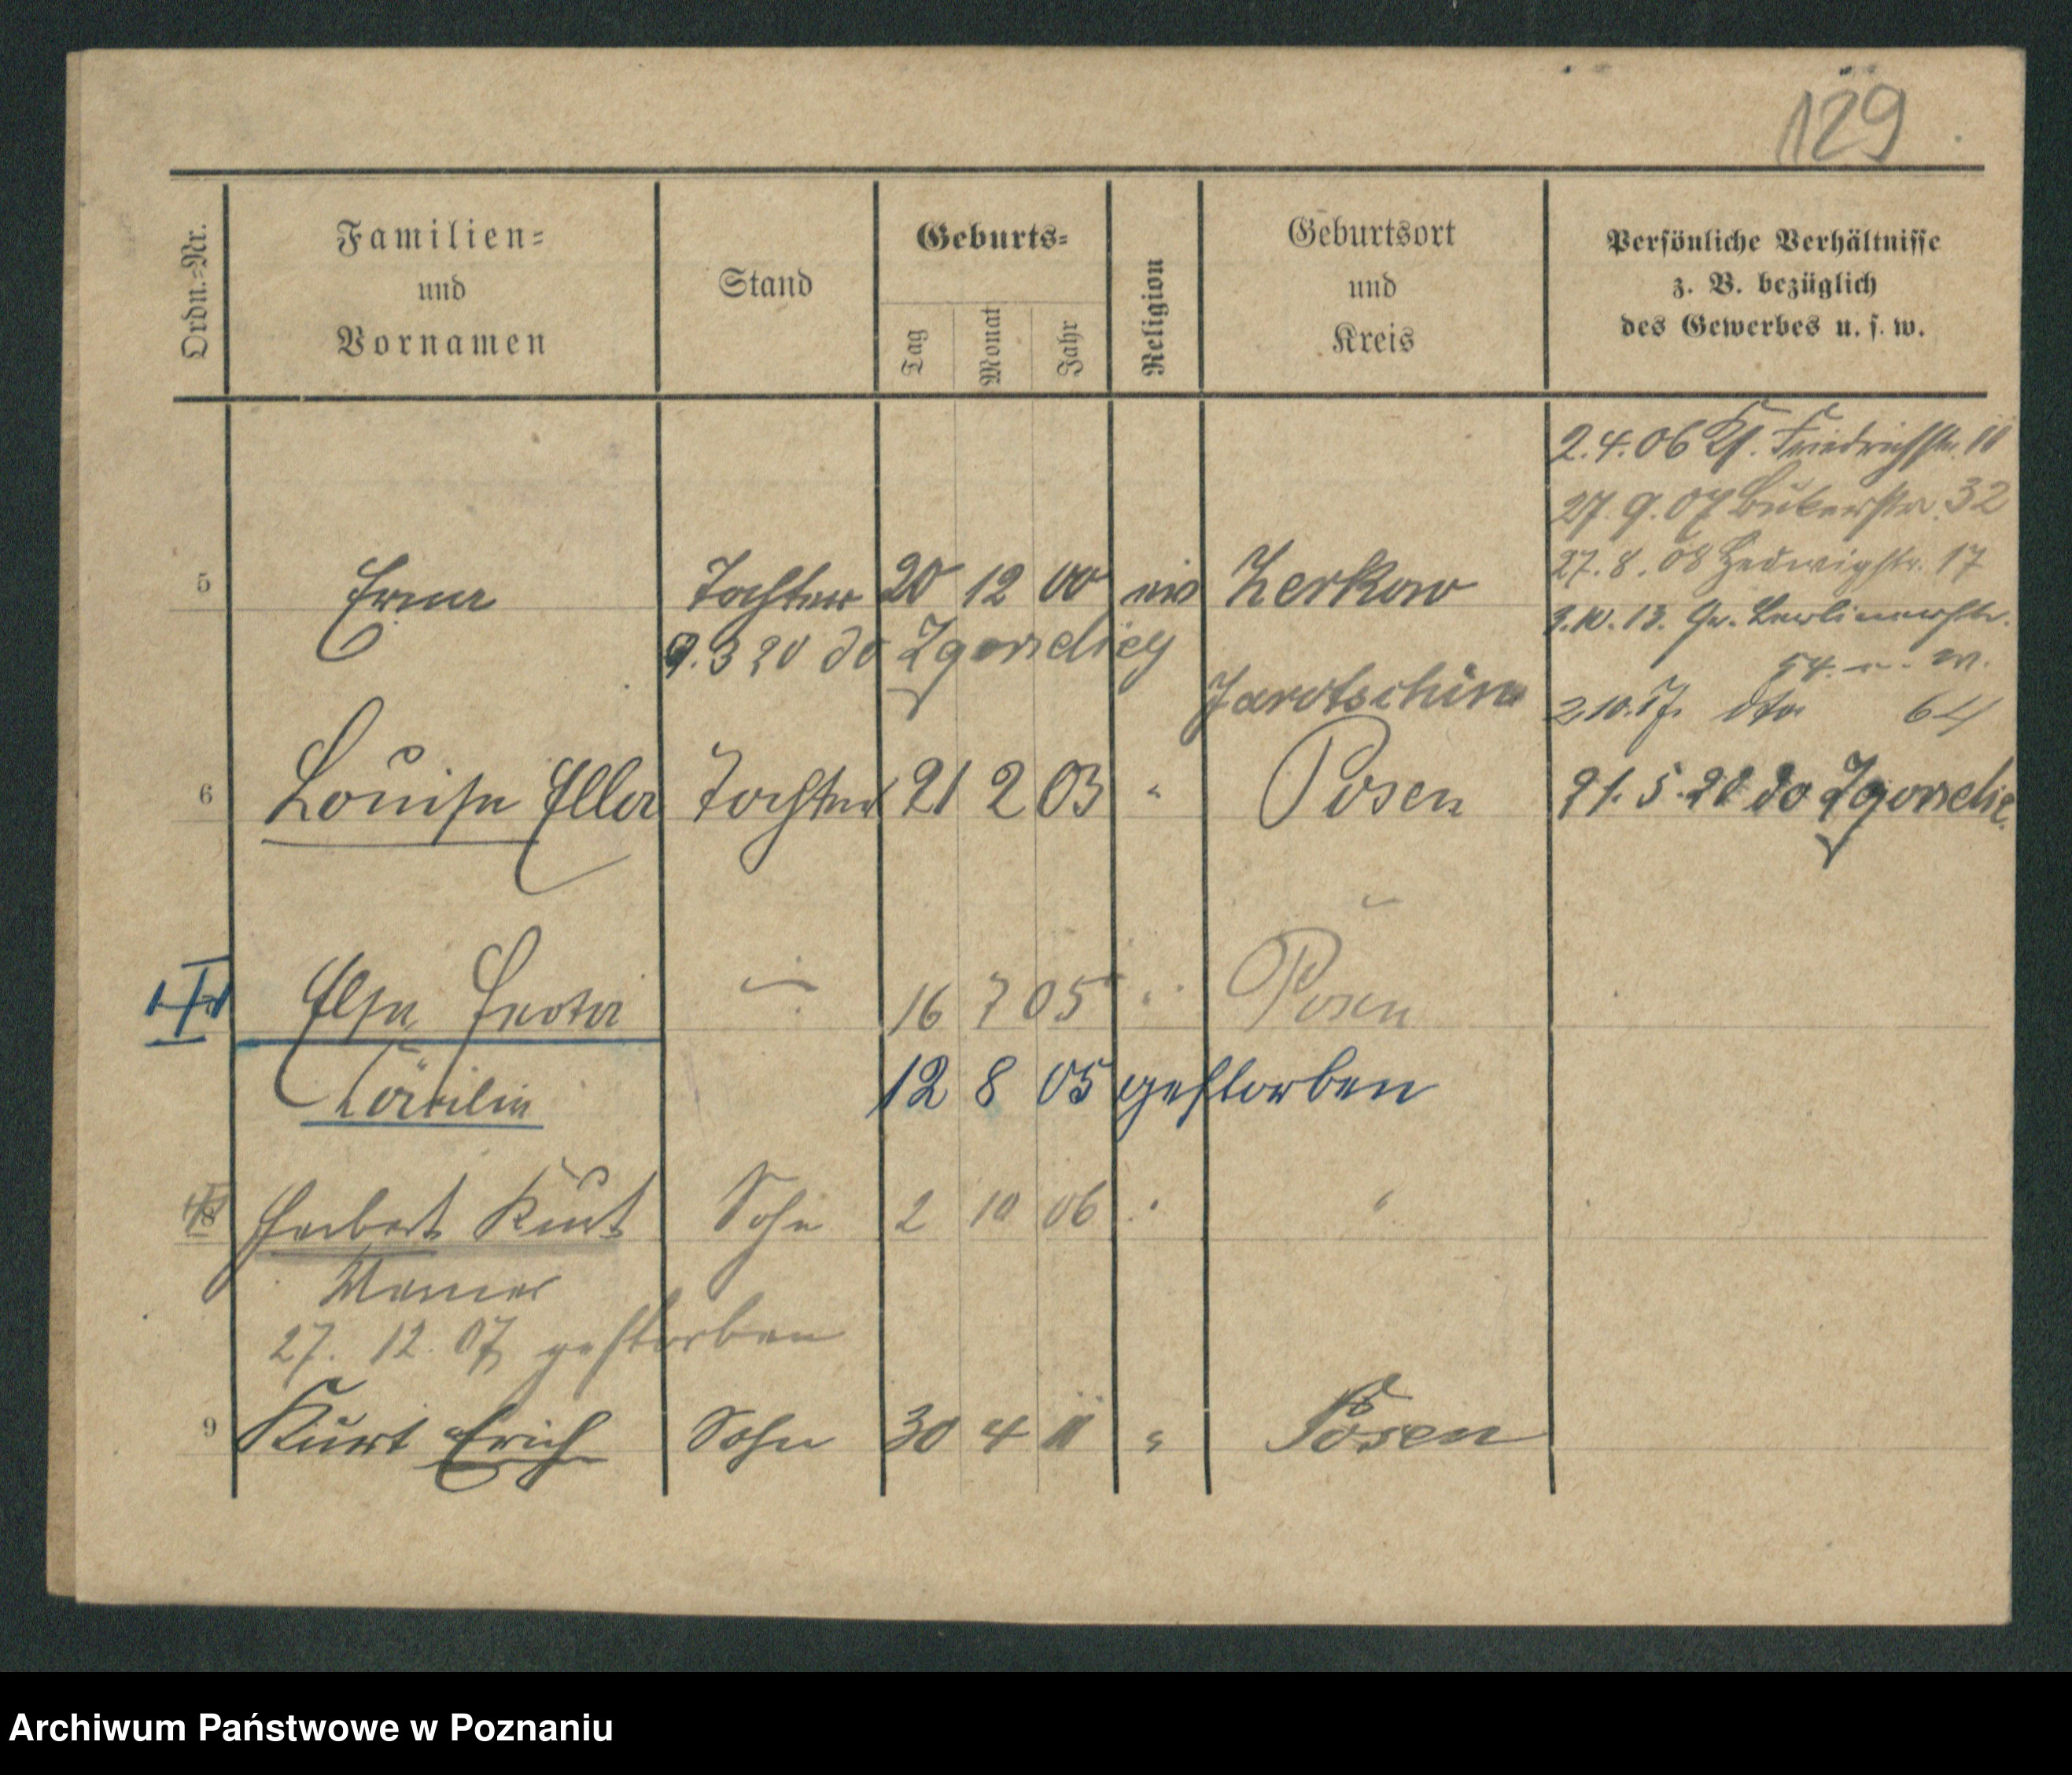 129
Ordn.-Nr.
Familien-
und
Vornamen
Stand
Geburts-
Tag
Monat
Jahr
Religion
Geburtsort
und
Kreis
Persönliche Verhältnisse
z. B. bezüglich
des Gewerbes u. s. w.
2.4.06 Kl. Friedrichstr. 11
27.9.07 Bukerstr. 32
27.8.08 Hedwigstr. 17
5 Erna Tochter 20 12 00 Zerkow
3.10.13. Gr. Berlinerstr.
9.3 20 do Zgorzelicy
54
Jarotschin
2.10.17. dto 64
6 Louise Ella Tochter 21 2 03 " Posen 21.5.20 do Zgorzelic
Elsa 16 7 05 " Posen
Cäcilie 12 8 05 gestorben
8 Herbert Kurt Sohn 2 10 06 " "
Werner
27. 12. 07 gestorben
9 Kurt Erich Sohn 30 4 11 " Posen
Archiwum Państwowe w Poznaniu